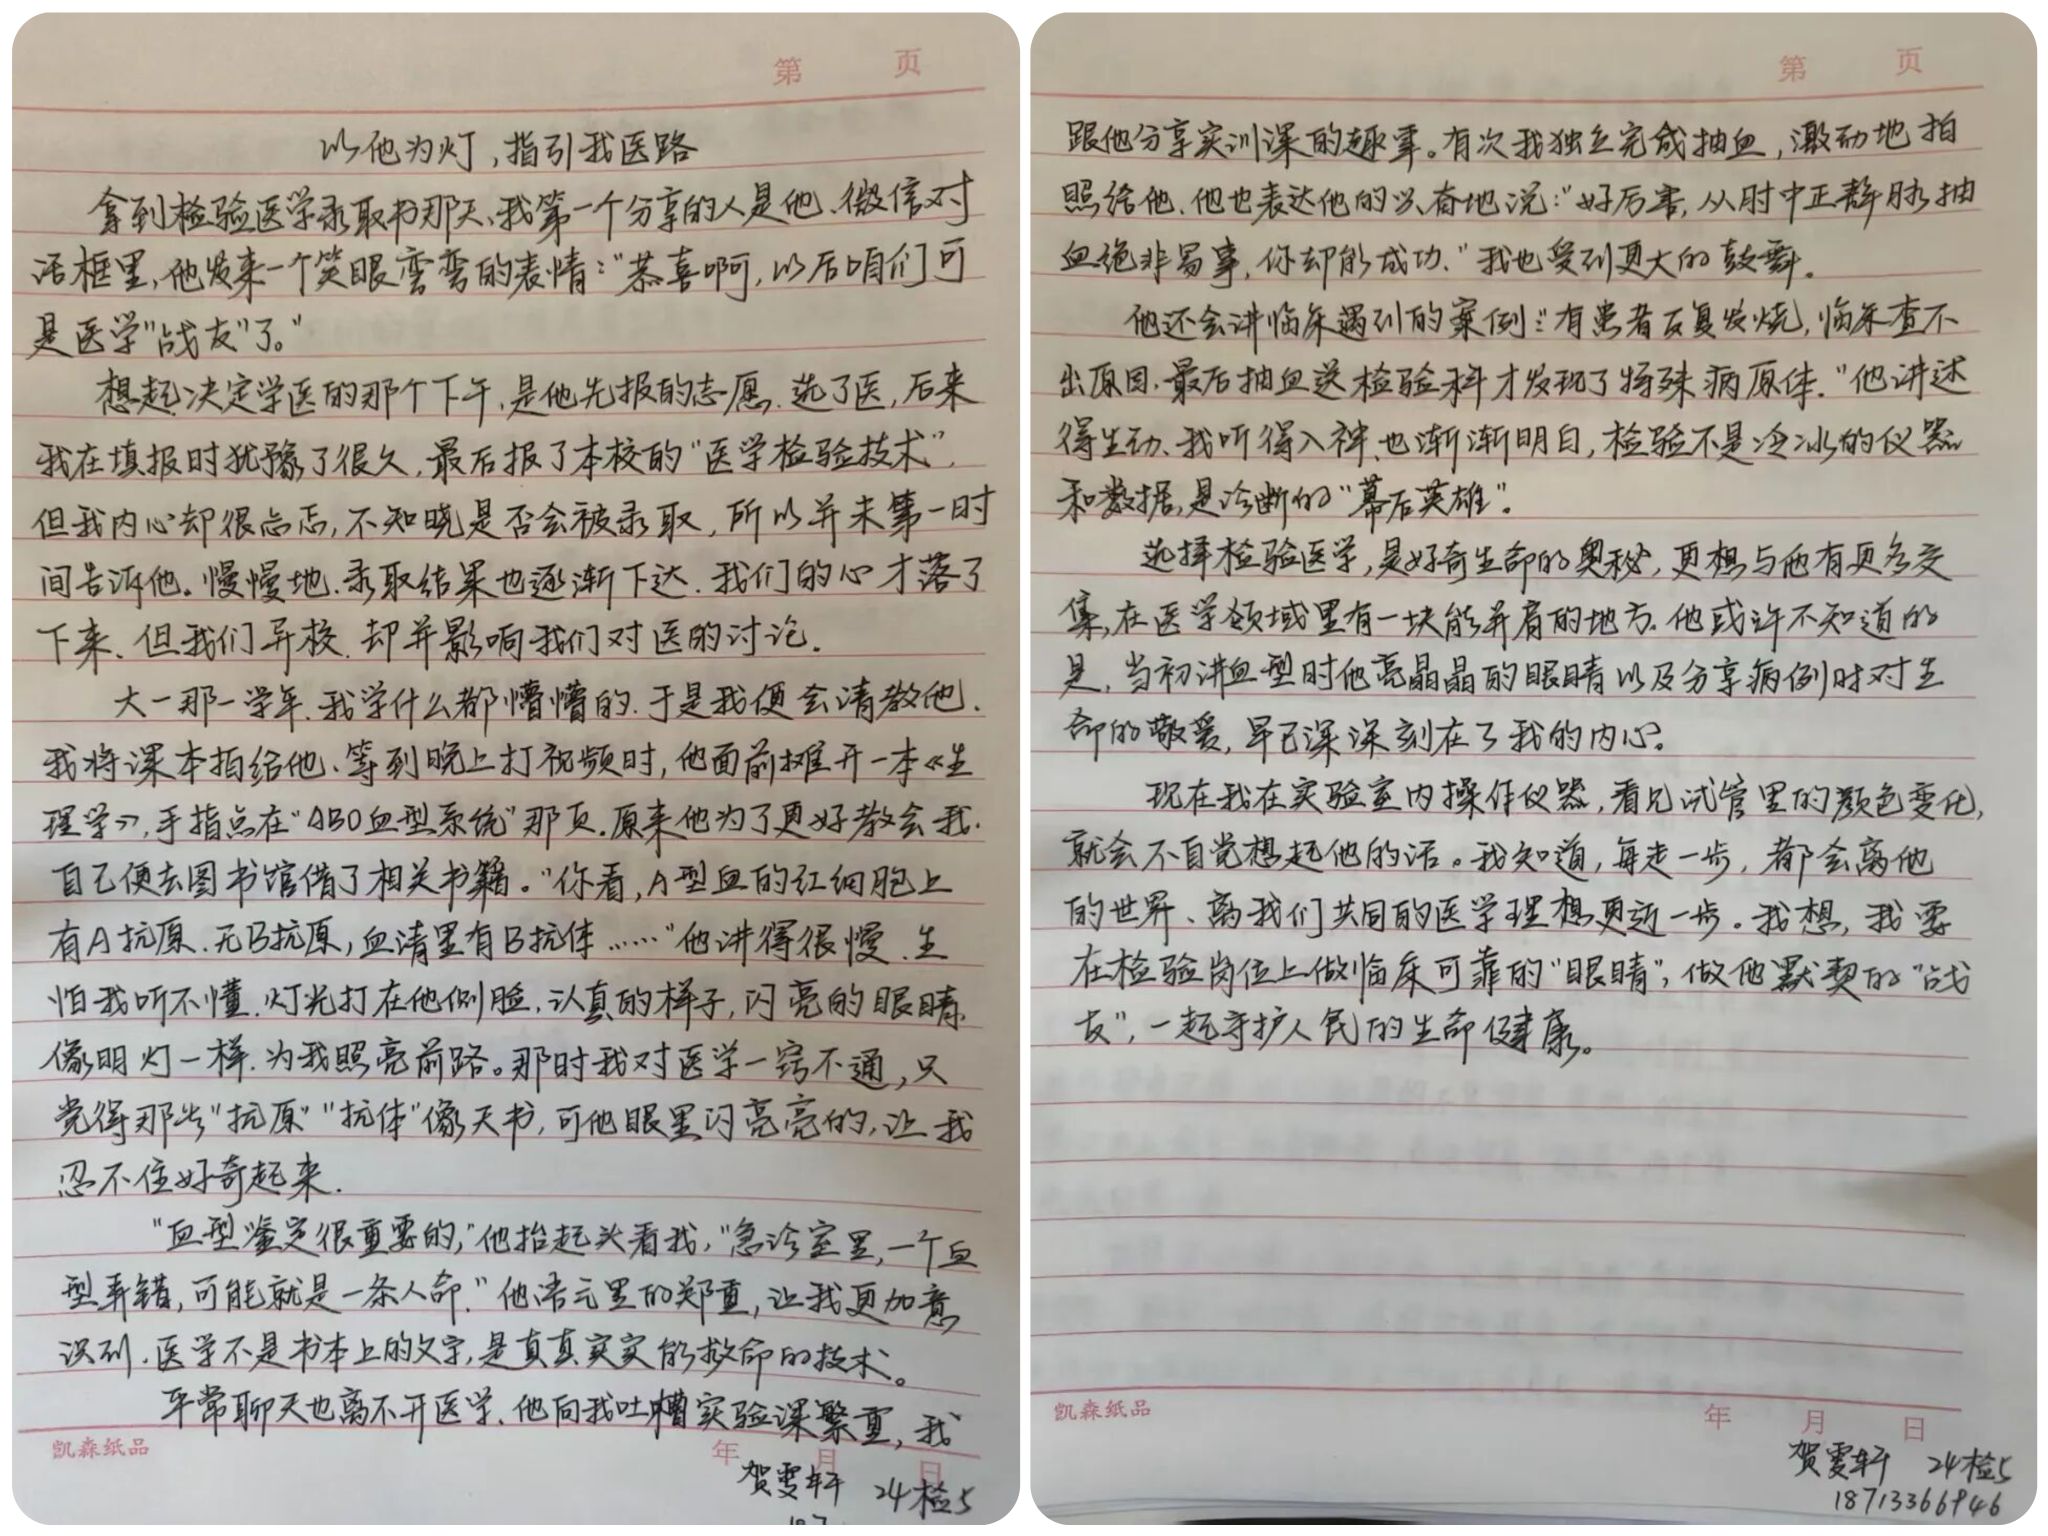 第 页
以他为灯，指引我医路
拿到检验医学录取书那天、我第一个分享的人是他、微信对
话框里，他发来一个笑眼弯弯的表情："恭喜啊，以后咱们可
是医学"战友"了。"
想起决定学医的那个下午，是他先报的志愿、选了医，后来
我在填报时犹豫了很久，最后报了本校的"医学检验技术"，
但我内心却很忐忑，不知晓是否会被录取，所以并未第一时
间告诉他。慢慢地、录取结果也逐渐下达、我们的心才落了
下来、但我们异校、却并影响我们对医的讨论。
大一那一学年、我学什么都懵懵的、于是我便会请教他、
我将课本拍给他、等到晚上打视频时，他面前摊开一本《生
理学》，手指点在"ABO血型系统"那页、原来他为了更好教会我、
自己便去图书馆借了相关书籍。"你看，A型血的红细胞上
有A抗原、无B抗原，血清里有B抗体……"他讲得很慢、生
怕我听不懂、灯光打在他侧脸、认真的样子，闪亮的眼睛、
像明灯一样、为我照亮前路。那时我对医学一窍不通，只
觉得那些"抗原""抗体"像天书，可他眼里闪亮亮的，让我
忍不住好奇起来、
"血型鉴定很重要的，"他抬起头看我，"急诊室里，一个血
型弄错，可能就是一条人命、"他语气里的郑重，让我更加意
识到、医学不是书本上的文字，是真真实实能救命的技术。
平常聊天也离不开医学、他向我吐槽实验课繁重，我
凯森纸品 年 月 日
贺雯轩 24检5
187
第 页
跟他分享实训课的趣事。有次我独立完成抽血，激动地拍
照给他、他也表达他的兴奋地说："好厉害，从肘中正静脉抽
血绝非易事，你却能成功、"我也受到更大的鼓舞。
他还会讲临床遇到的案例："有患者反复发烧，临床查不
出原因、最后抽血送检验科才发现了特殊病原体、"他讲述
得生动、我听得入神、也渐渐明白，检验不是冷冰的仪器
和数据，是诊断的"幕后英雄"。
选择检验医学，是好奇生命的奥秘，更想与他有更多交
集，在医学领域里有一块能并肩的地方、他或许不知道的
是，当初讲血型时他亮晶晶的眼睛以及分享病例时对生
命的敬爱，早已深深刻在了我的内心。
现在我在实验室内操作仪器，看见试管里的颜色变化，
就会不自觉想起他的话。我知道，每走一步，都会离他
的世界、离我们共同的医学理想更近一步。我想，我要
在检验岗位上做临床可靠的"眼睛"，做他默契的"战
友"，一起守护人民的生命健康。
凯森纸品 年 月 日
贺雯轩 24检5
18713366946